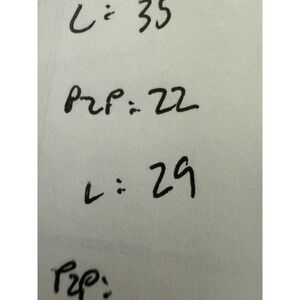 L: 35
P2P: 22
L: 29
P2P: